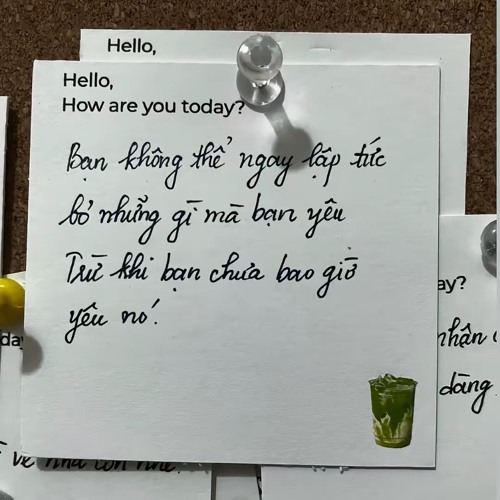 Hello,
Hello,
How are you today?
Bạn không thể ngay lập tức
bỏ những gì mà bạn yêu
Trừ khi bạn chưa bao giờ
yêu nó!
ay?
nhận
dàng
day
về nhà còn nhé.